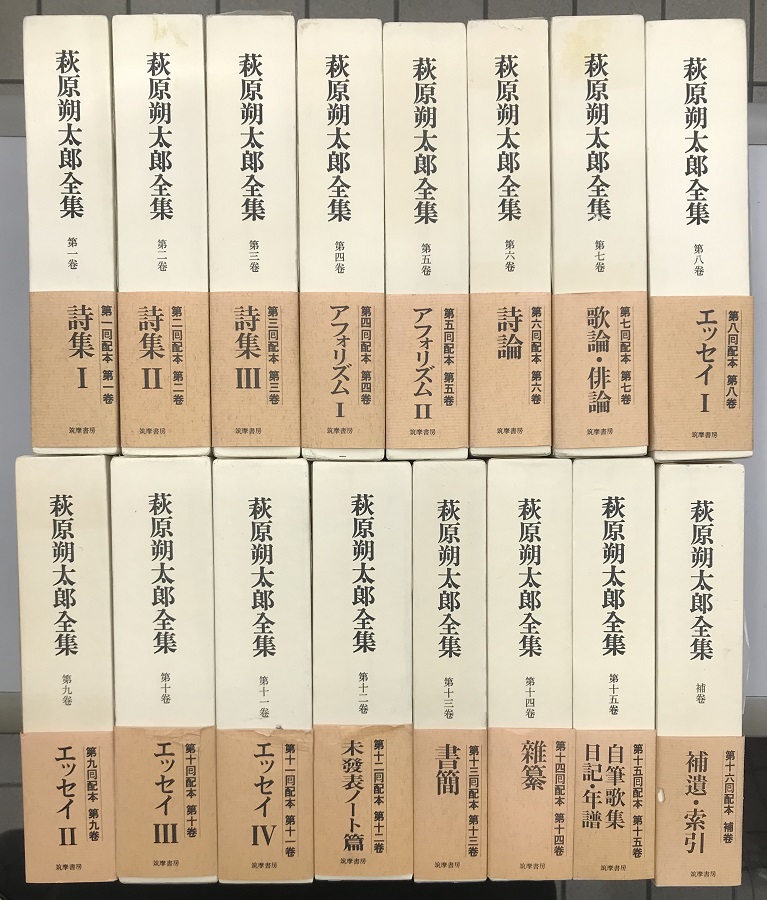 萩原朔太郎全集
第一卷
第一回配本 第一卷
詩集 I
筑摩書房
萩原朔太郎全集
第二卷
第二回配本 第二卷
詩集 II
筑摩書房
萩原朔太郎全集
第三卷
第三回配本 第三卷
詩集 III
筑摩書房
萩原朔太郎全集
第四卷
第四回配本 第四卷
アフォリズム I
筑摩書房
萩原朔太郎全集
第五卷
第五回配本 第五卷
アフォリズム II
筑摩書房
萩原朔太郎全集
第六卷
第六回配本 第六卷
詩論
筑摩書房
萩原朔太郎全集
第七卷
第七回配本 第七卷
歌論・俳論
筑摩書房
萩原朔太郎全集
第八卷
第八回配本 第八卷
エッセイ I
筑摩書房
萩原朔太郎全集
第九卷
第九回配本 第九卷
エッセイ II
筑摩書房
萩原朔太郎全集
第十卷
第十回配本 第十卷
エッセイ III
筑摩書房
萩原朔太郎全集
第十一卷
第十一回配本 第十一卷
エッセイ IV
筑摩書房
萩原朔太郎全集
第十二卷
第十二回配本 第十二卷
未發表ノート篇
筑摩書房
萩原朔太郎全集
第十三卷
第十三回配本 第十三卷
書簡
筑摩書房
萩原朔太郎全集
第十四卷
第十四回配本 第十四卷
雜纂
筑摩書房
萩原朔太郎全集
第十五卷
第十五回配本 第十五卷
自筆歌集
日記・年譜
筑摩書房
萩原朔太郎全集
補卷
第十六回配本 補卷
補遺・索引
筑摩書房